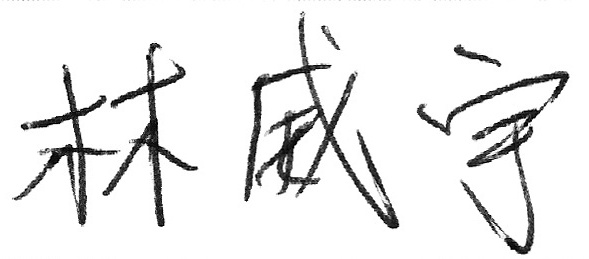 林威宇